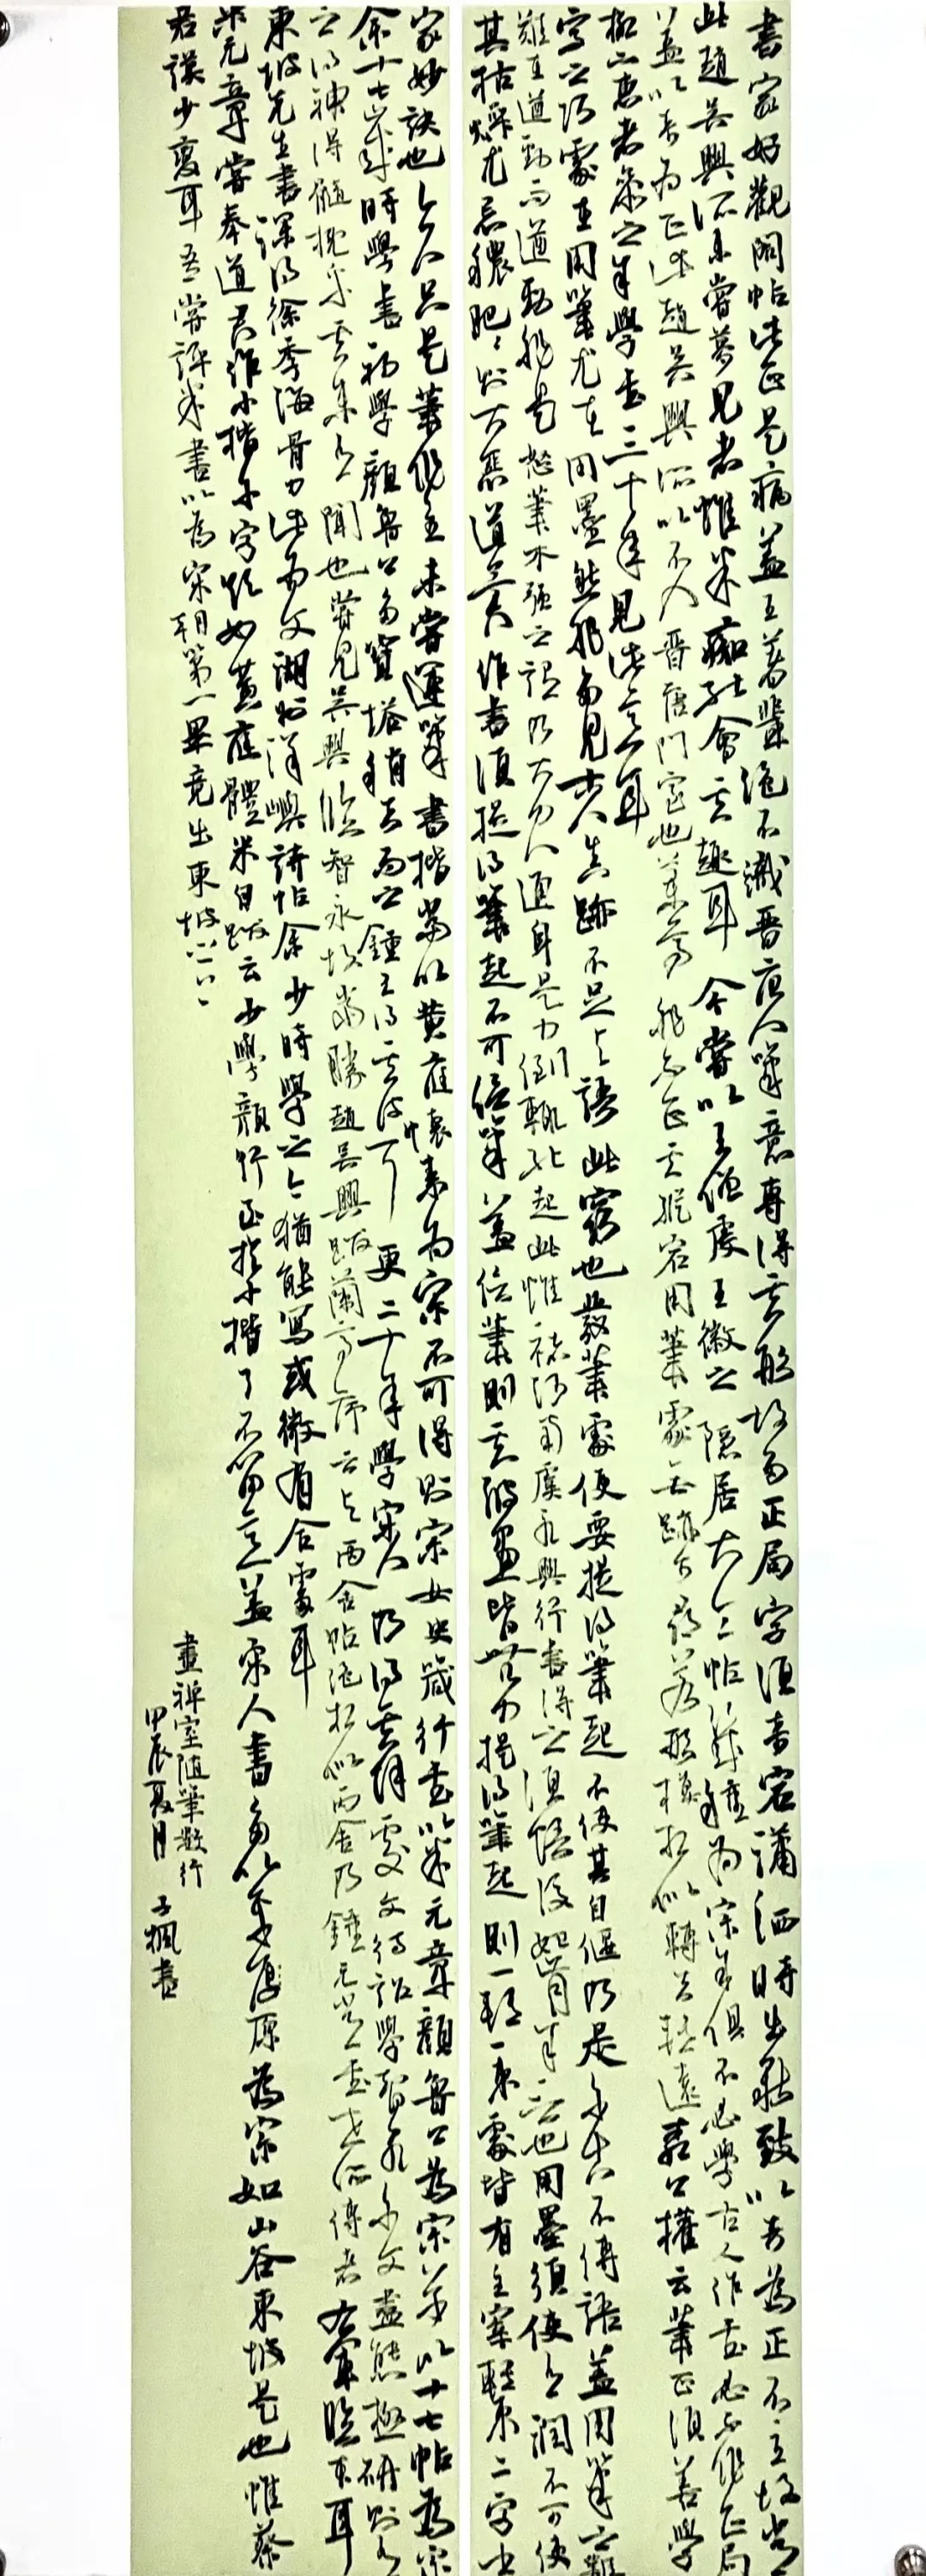 書家好觀閣帖此正是病蓋王著輩絕不識晉唐人筆意專得其形故多正局字須奇宕瀟洒時出新致以奇為正不主故常
此趙吳興所未嘗夢見者惟米癡能會其趣耳今當以王僧虔王徽之陶隱居大令帖幾種為宗等俱不必學古人作書必不作正局
蓋以奇為正此趙吳興所以不入晉唐門室也蘭亭非不正其縱宕用筆處無跡可尋若形模相似轉去轉遠柳公權云筆正須善學
柳下惠者參之余學書三十年見此意耳
字之巧處在用筆尤在用墨然非多見古人真跡不足與語此竅也發筆處便要提得筆起不使其自偃乃是千古不傳語蓋用筆之難
難在遒勁而遒勁非是怒筆木強之謂乃大力人通身是力倒輒能起此惟褚河南虞永興行書得之須悟後始肯余言也用墨須使有潤不可使
其枯燥尤忌穠肥肥則大惡道矣作書須提得筆起不可信筆蓋信筆則其波畫皆無力提得筆起則一轉一束處皆有主宰轉束二字書
家妙訣也今人只是筆作主未嘗運筆書楷當以黃庭懷素為宗不可得則宗女史箴行書以米元章顏魯公為宗草以十七帖為宗
余十七歲時學書初學顏魯公多寶塔稍去而之鍾王得其皮耳更二十年學宋人乃得其解處文待詔學智永千文盡態極研則有
之得神得髓概乎其未有聞也嘗見吳興臨智永故當勝趙吳興跋蘭亭序云與丙舍帖絕相似丙舍乃鍾元常書世所傳者右軍臨本耳
東坡先生書深得徐季海骨力此為文湖州洋嶼詩帖余少時學之今猶能寫或微有合處耳
米元章嘗奉道君作小楷千字欲如黃庭體米自跋云少學顏行至於小楷了不留意蓋宋人書多以平原為宗如山谷東坡是也惟蔡
君謨少變耳吾嘗評米書以為宋朝第一畢竟出東坡之上
畫禪室隨筆數行
甲辰夏月 子楓書